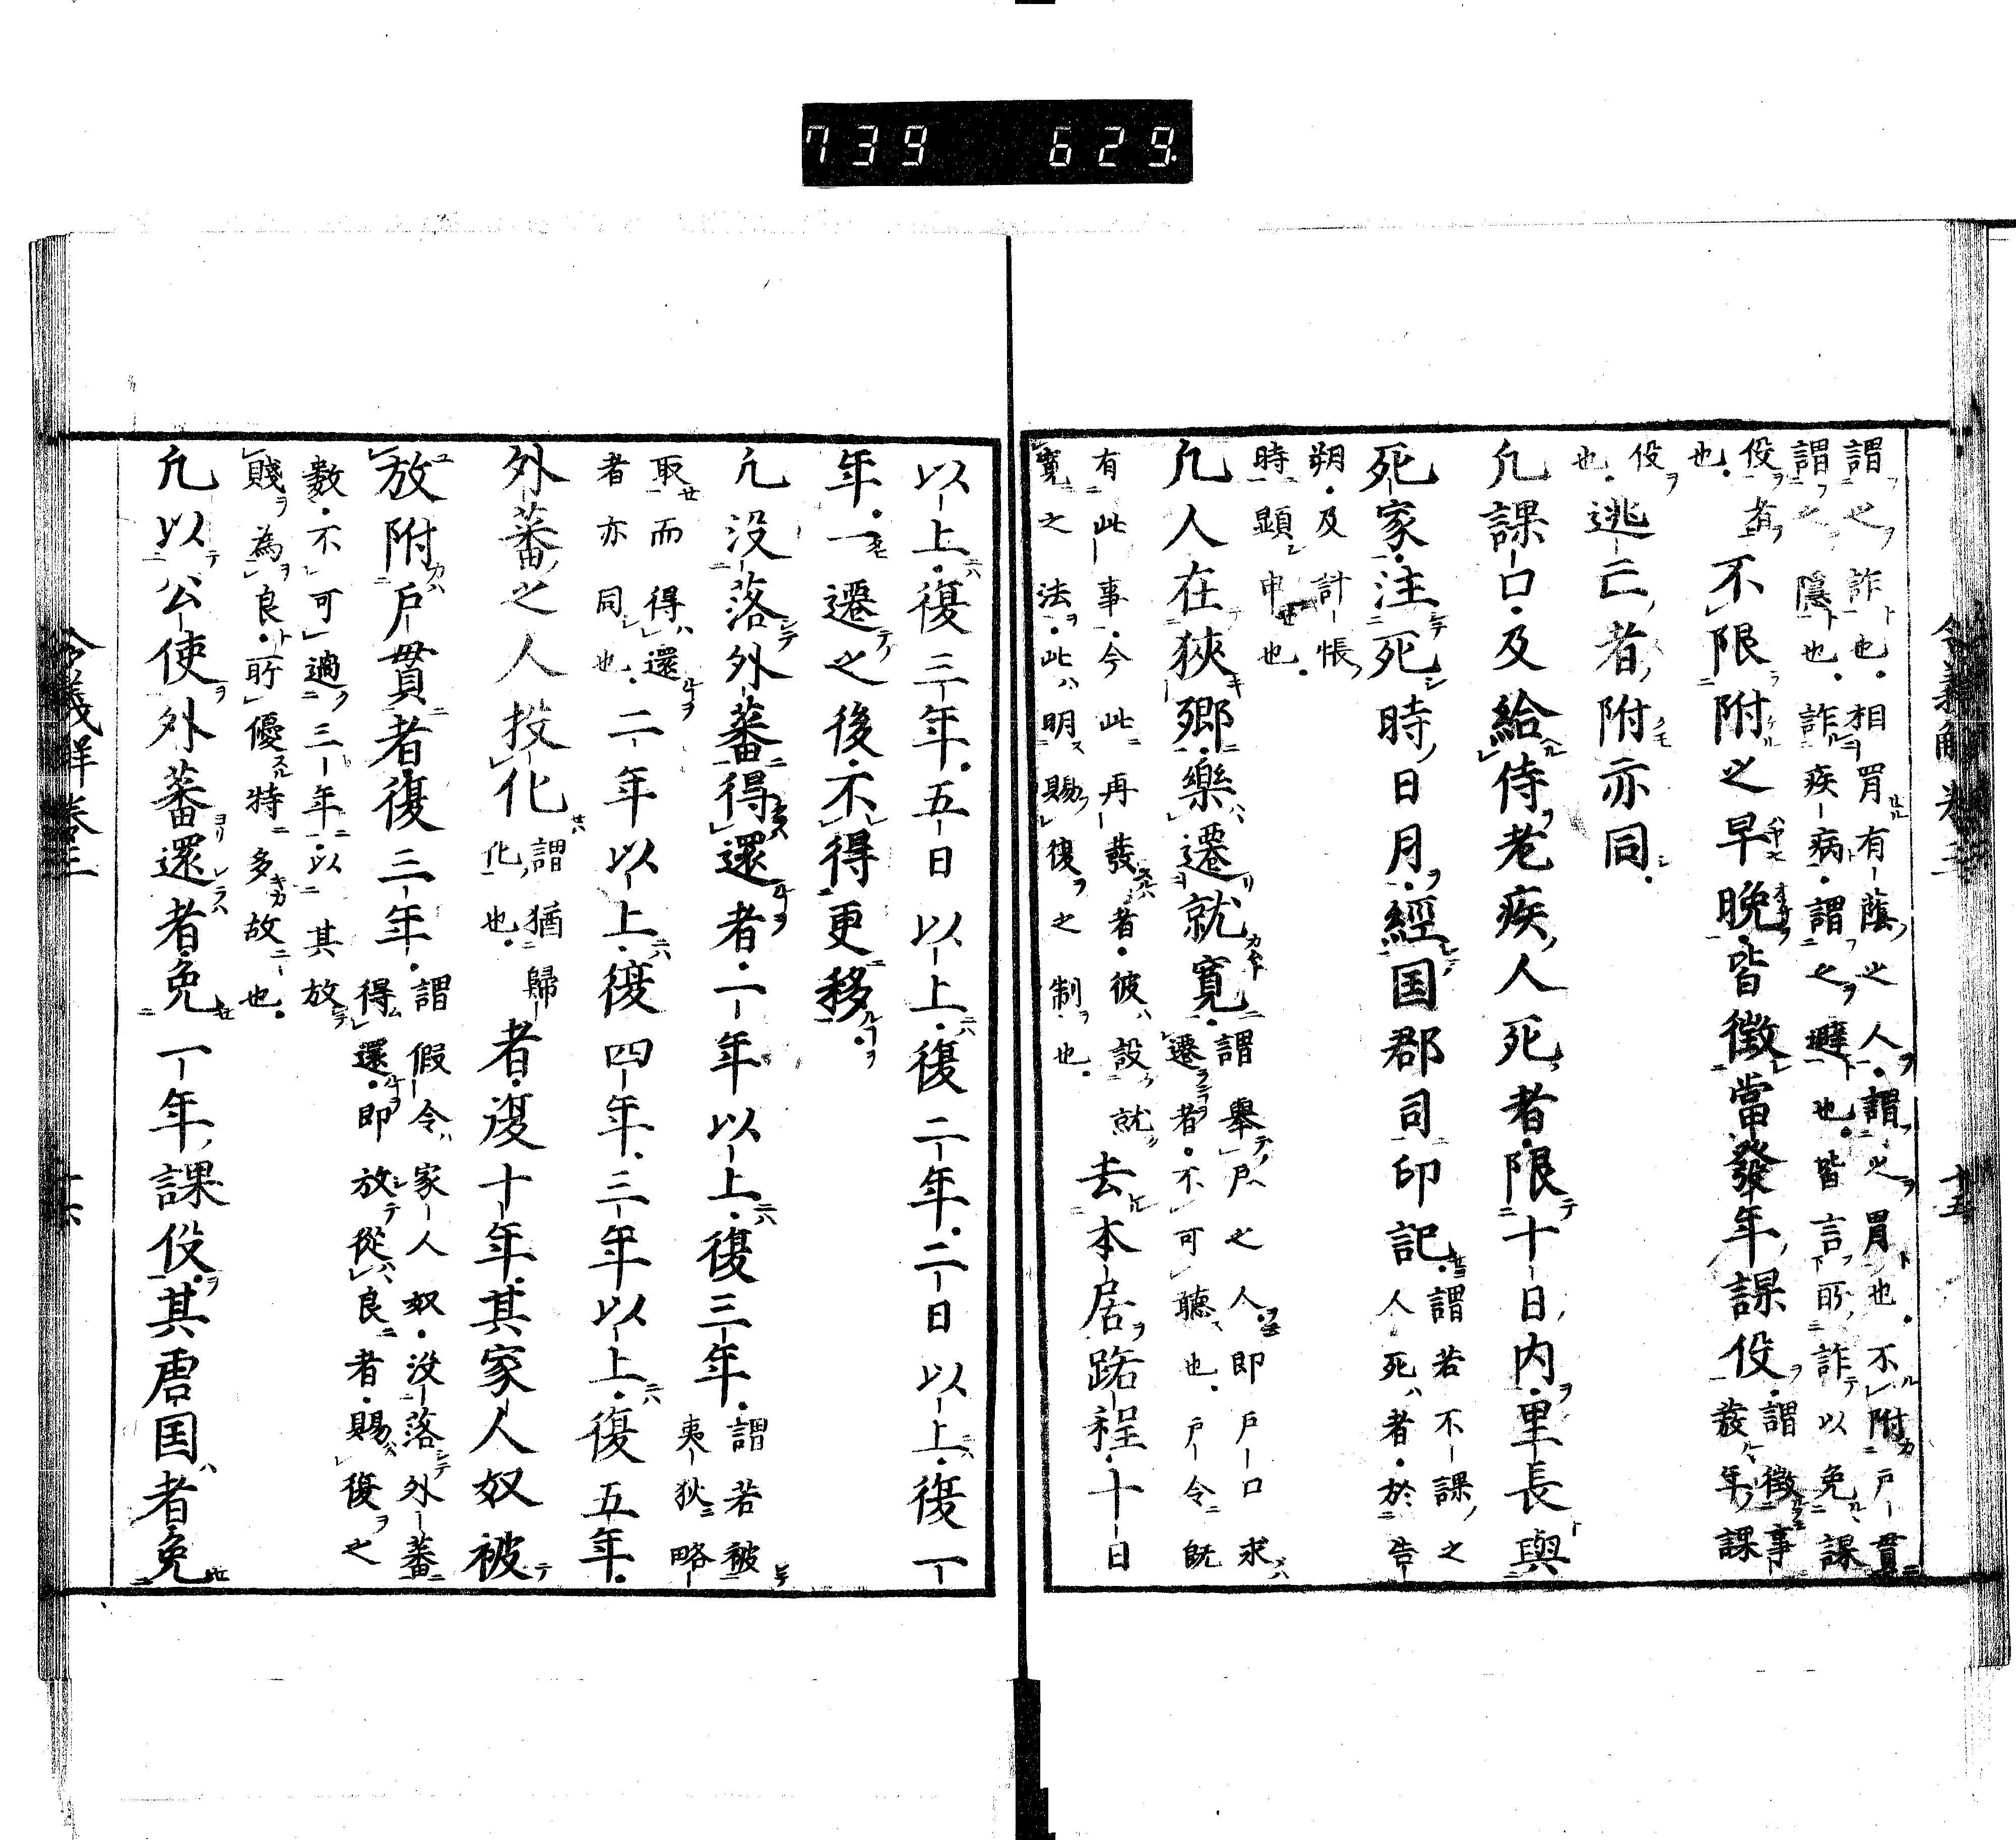 739 629
令義解卷三 十五
謂之詐也。相冒有蔭之人。謂之冒也。不附戶貫
謂之隱也。詐疾病。謂之避也。皆言所詐以免課
役者不限附之早晚。皆徵當發年課役。謂徵事
也。發年課
役
也。逃亡者附亦同。
凢課口及給侍老疾人死者。限十日內。里長與
死家。注死時日月。經国郡司印記。謂若不課之
人死者。於告
朔及計帳
時顯申也。
凢人在狹鄉。樂遷就寛。謂舉戶之人。即戶口求
遷者。不可聽也。戶令既
有此事。今此再發者。彼設就
寛之法。此明賜復之制也。
去本居路程。十日
以上。復三年。五日以上。復二年。二日以上。復一
年。一遷之後。不得更移。
凢没落外蕃得還者。一年以上。復三年。謂若被
夷狄略
取而得還
者亦同也。
二年以上。復四年。三年以上。復五年。
外蕃之人投化謂猶歸
化也。
者。復十年。其家人奴被
放附戶貫者。復三年。謂假令家人奴。没落外蕃
得還。即放從良者。賜復之
數。不可適三年。以其放
賤為良。所優特多故也。
凢以公使外蕃還者。免一年課役。其唐国者。免
令義解卷三 十六